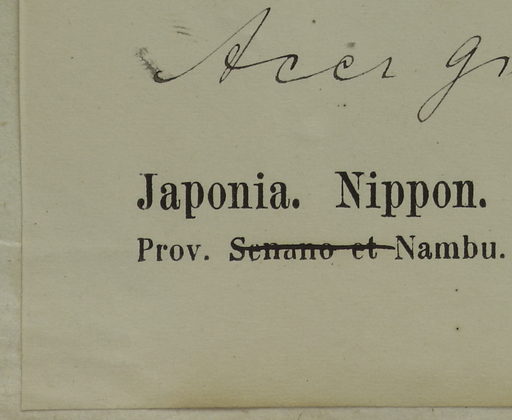 Acer
Japonia. Nippon.
Prov. Senano et Nambu.